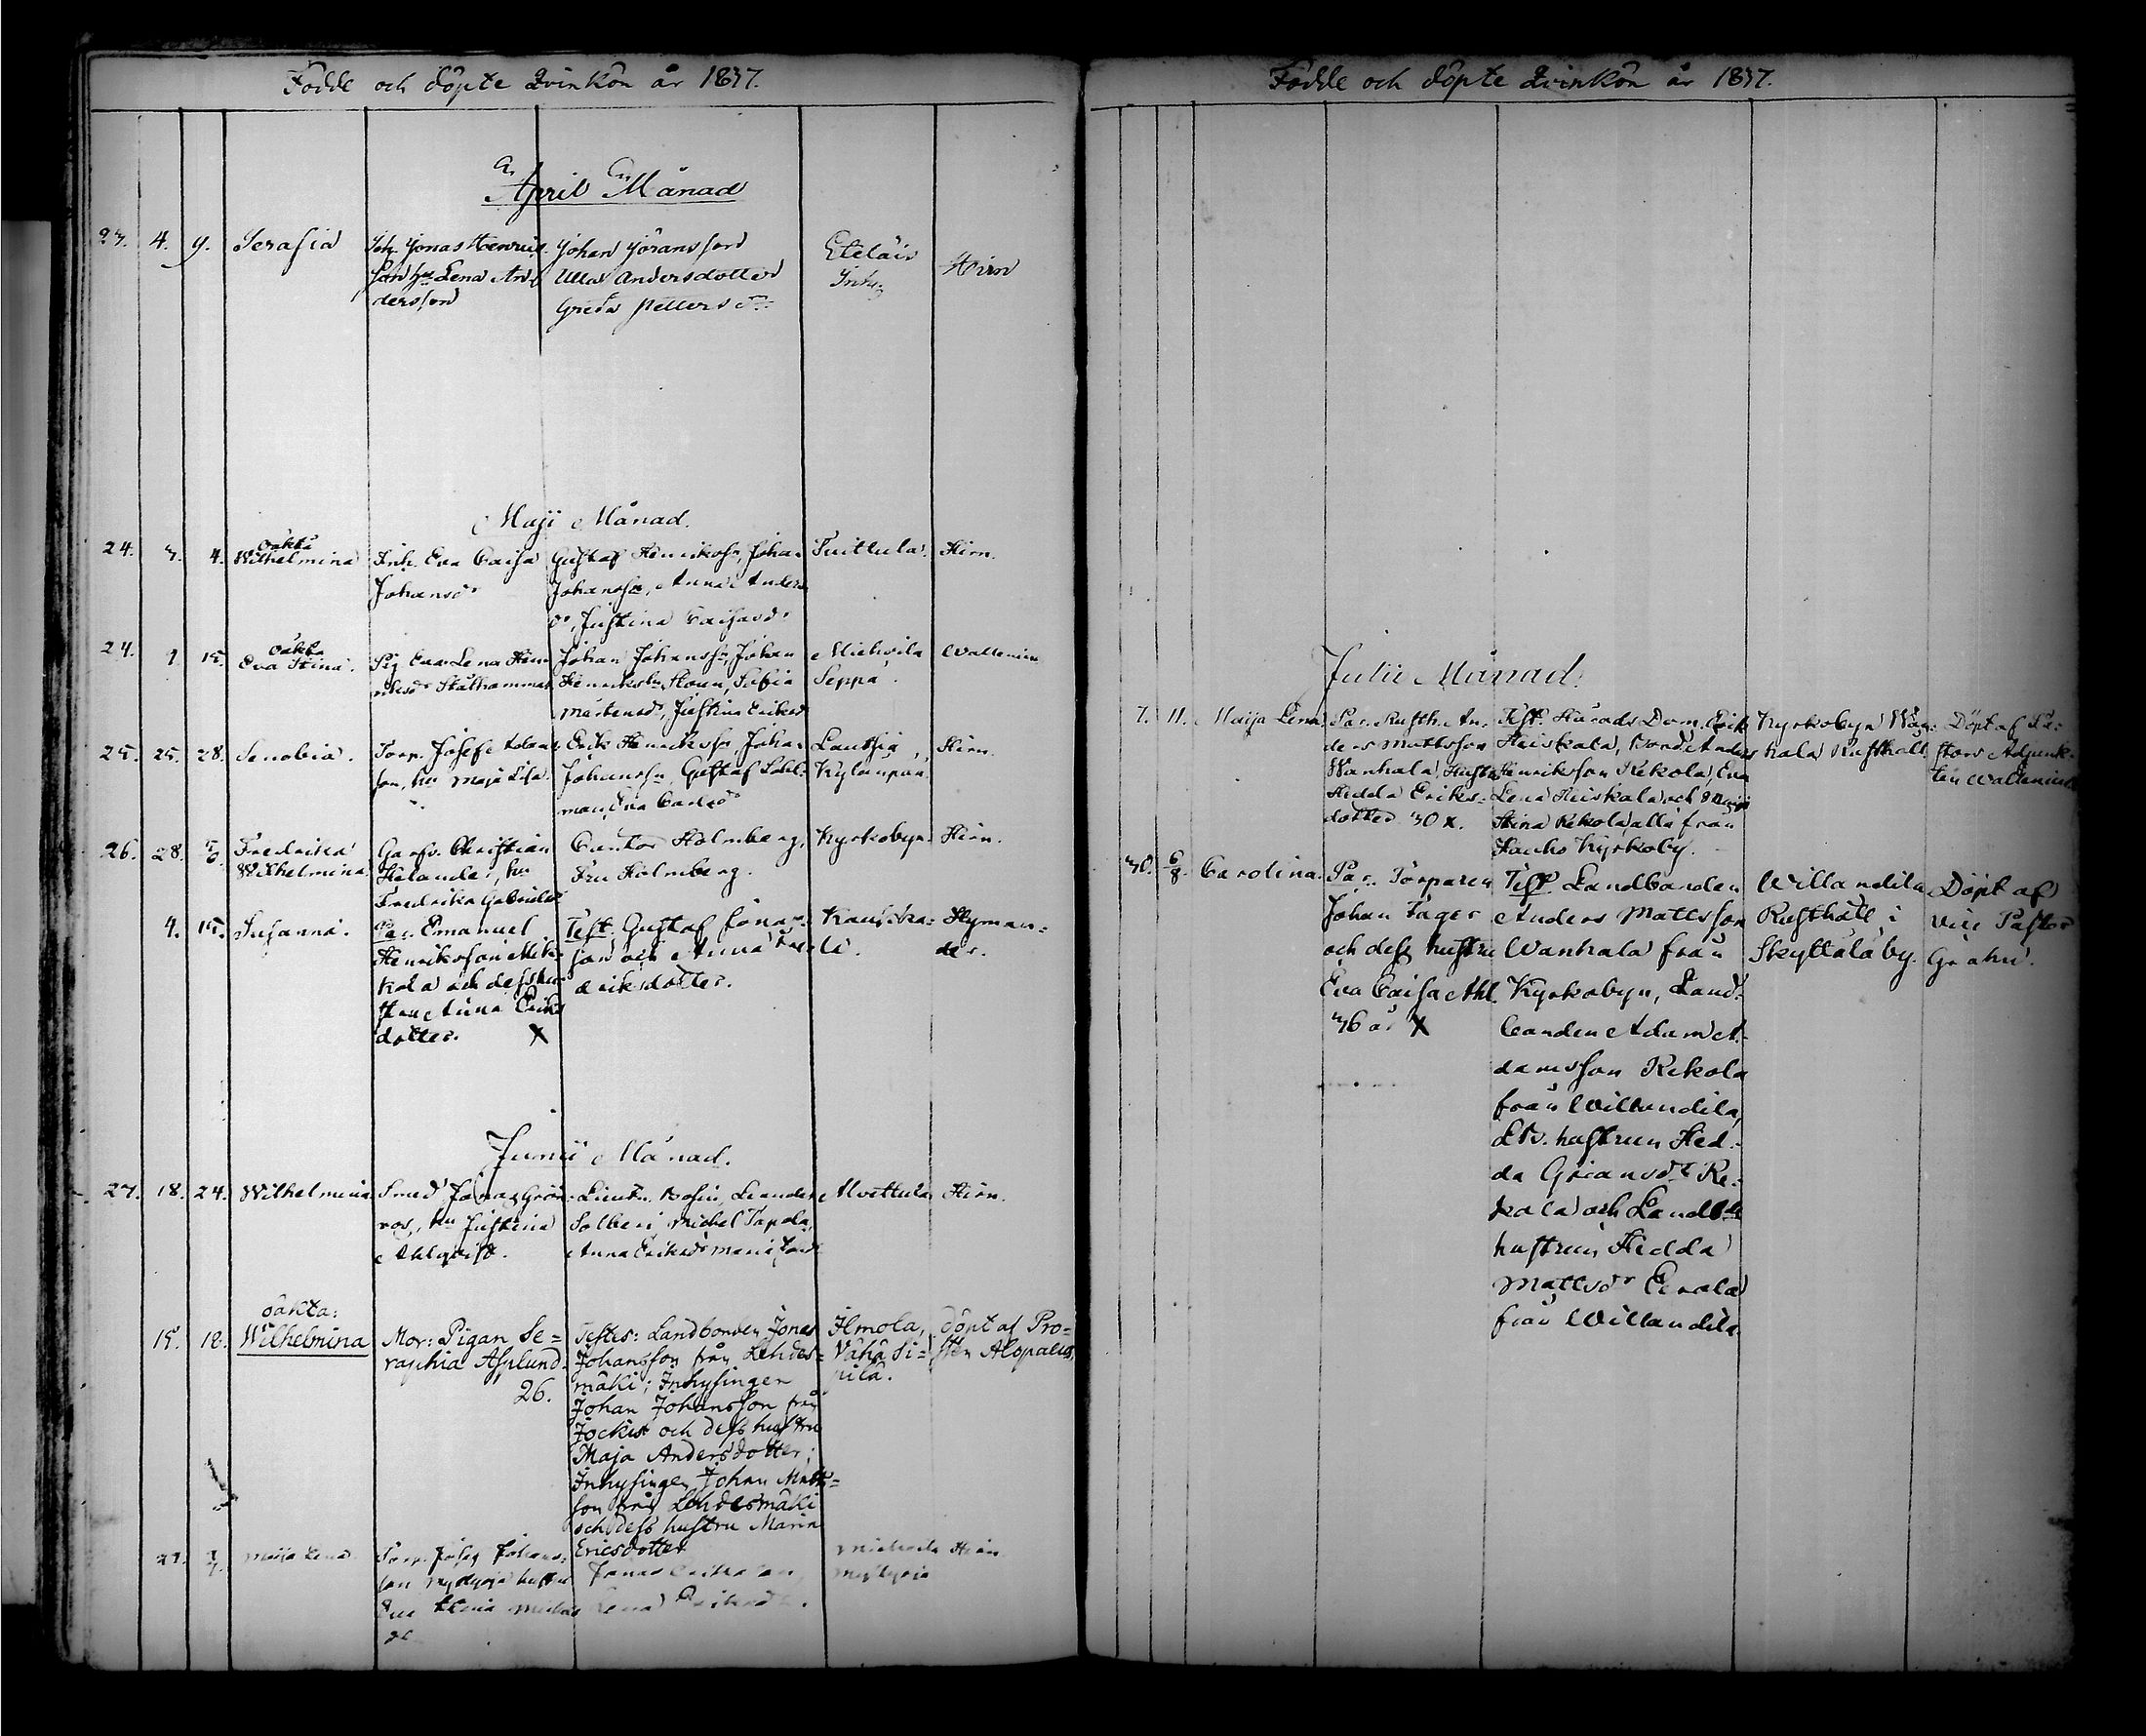 Födde och döpte Qvinkön år 1837.
April Månad
23. 4. 9. Serafia
Jonas Henric
son hu Lena An
dersson
Johan Göransson
Ulla Andersdotter
Greta Petters dr
Eteläis
Hirn
Maji Månad.
24. 3. 4. oäkta
Wilhelmina
Inh. Eva Caisa
Johansdr
Gustaf Henrikss, Johan
Johanss, Anna Anders
dr, Justina
Tuittula. Hirn.
24. 9. 15. oäkta
Eva Stina.
Pig. Eva Lena Hen
riksdr Stålhammar
Johan Johanss, Johan
Henrikss, Sofia
Mårtensd, Justina Eriksd
Michvila
Seppä.
Wallenius
25. 25. 28. Senobia.
Torp. Josef Adams
son, hu Maja Lisa
Erik Henrikss, Johan
Johanss, Gustaf
man, Eva Carlsd
Lautsia,
Kylänpää
Hirn.
26. 28. Fredrika
Wilhelmina
Garfv. Christian
Helander, hu
Fredrika Gabrielsd
Cantor Holmberg,
Fru Holmberg.
Kyrkobyn. Hirn.
4. 15. Susanna.
Par. Emanuel
Henriksson
kola och dess hu
stru Anna Eriks
dotter. X
Test. Gustaf Jona
son och Anna
eriksdotter.
Hyman=
der.
Junii Månad.
27. 18. 24. Wilhelmina
Smed Jonas Grön
roos, hu Justina
Ahlqvist.
Leander
Solberi Michel Tapola,
Anna Eriksdr Maria
Alvettula Hirn.
oäkta:
15. 18. Wilhelmina
Mor: Pigan Se=
raphia Asplund.
26.
Testes: Landbonden Jonas
Johansson från Lehdes=
mäki; Inhysingen
Johan Johansson från
Jockis och dess hustru
Maja Andersdotter;
Inhysingen Johan Matts=
son från Lehdesmäki
och dess hustru Maria
Ericsdotter
Ilmola,
Vähä Si=
pilä.
döpt af Pro=
sten Alopaeus.
Maija Lena
Torp. Josef Johans=
son hustru
Jonas
Hirn
Födde och döpte Qvinkön år 1837.
Julii Månad.
7. 11. Maija Lena
Par. Rusth. An=
ders Mattsson
Wanhala, Hustr.
Hedda Eriks=
dotter 30 x.
Test. Härads Dom. Erik
Heiskala, Bonde Anders
Henriksson Rekola, Eva
Lena Heiskala och Maija
Stina Rekola alla från
Hauho Kyrkoby.
Kyrkobyn Wan=
hala Rusthåll.
Döpt af Pa=
stors Adjunk=
ten Wallenius
30. 6/8 Carolina.
Par. Torparen
Johan Jäger
och dess hustru
Eva Caisa Ahl.
36 år X
Test. Landbonden
Anders Mattsson
Wanhala från
Kyrkobyn, Land=
bonden Adam A=
damsson Rekola
från Willandila,
Lb. hustrun Hed=
da Göransdr Re=
kola och Landb.
hustrun Hedda
Mattsdr Eerola
från Willandila.
Willandila
Rusthåll i
Skyttälä by.
Döpt af
vice Pastor
Grahn.